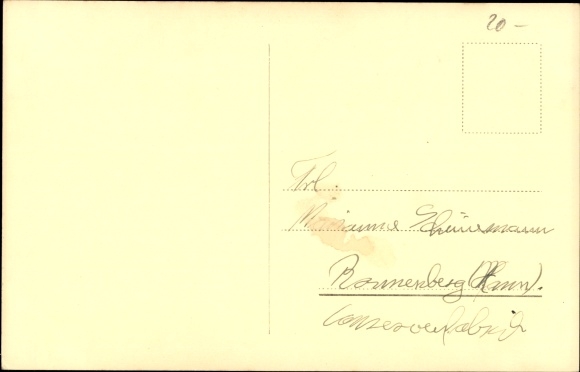 20.-
Frl.
Marianne Scheunemann
Ronnenberg (Hann).
Conservenfabrik